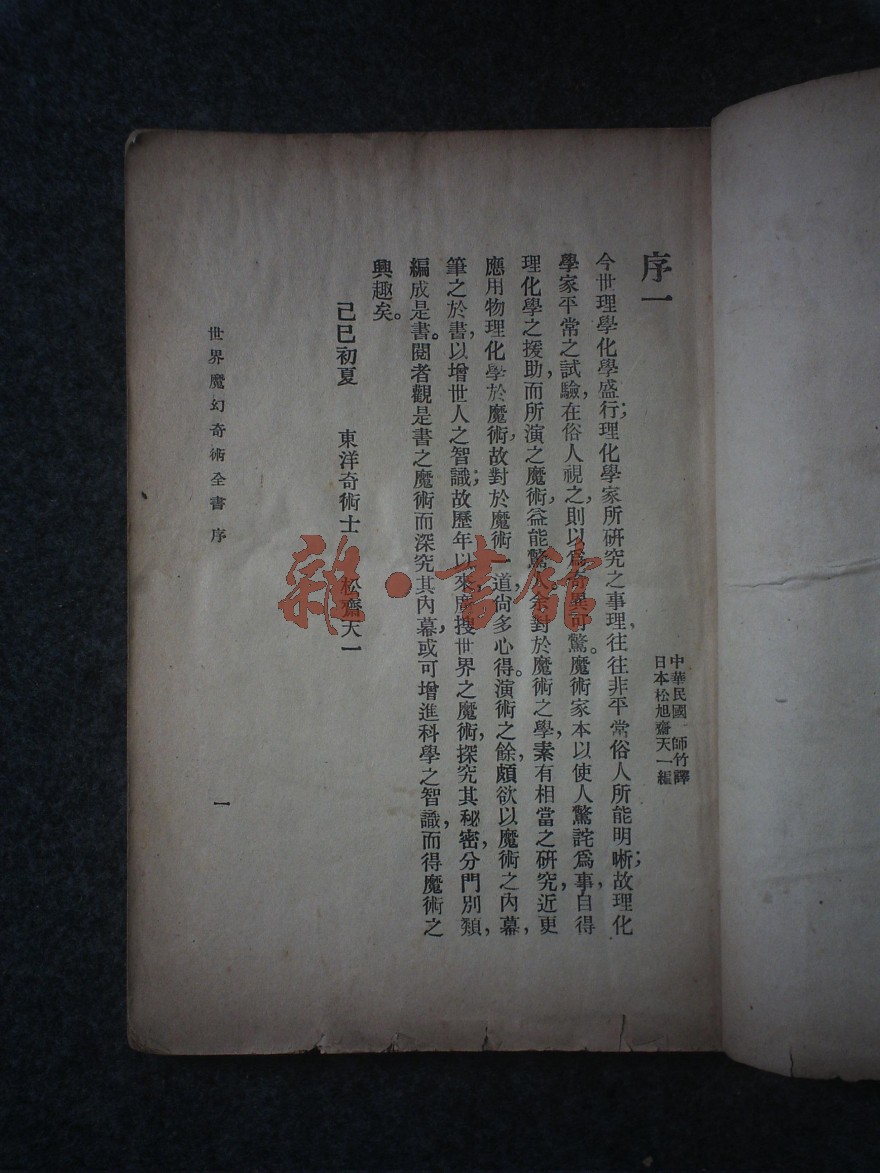 序一
中華民國 師竹譯
日本松旭齋天一編
今世理學化學盛行；理化學家所研究之事理，往往非平常俗人所能明晰；故理化
學家平常之試驗，在俗人視之，則以爲奇異可驚。魔術家本以使人驚詫爲事，自得
理化學之援助，而所演之魔術，益能驚人。余對於魔術之學，素有相當之研究，近更
應用物理化學於魔術，故對於魔術一道，尙多心得。演術之餘，頗欲以魔術之內幕，
筆之於書，以增世人之智識；故歷年以來，廣搜世界之魔術，探究其秘密，分門別類，
編成是書。閱者觀是書之魔術，而深究其內幕，或可增進科學之智識，而得魔術之
興趣矣。
己巳初夏 東洋奇術士 松齋天一
世界魔幻奇術全書 序
一
雜·書館